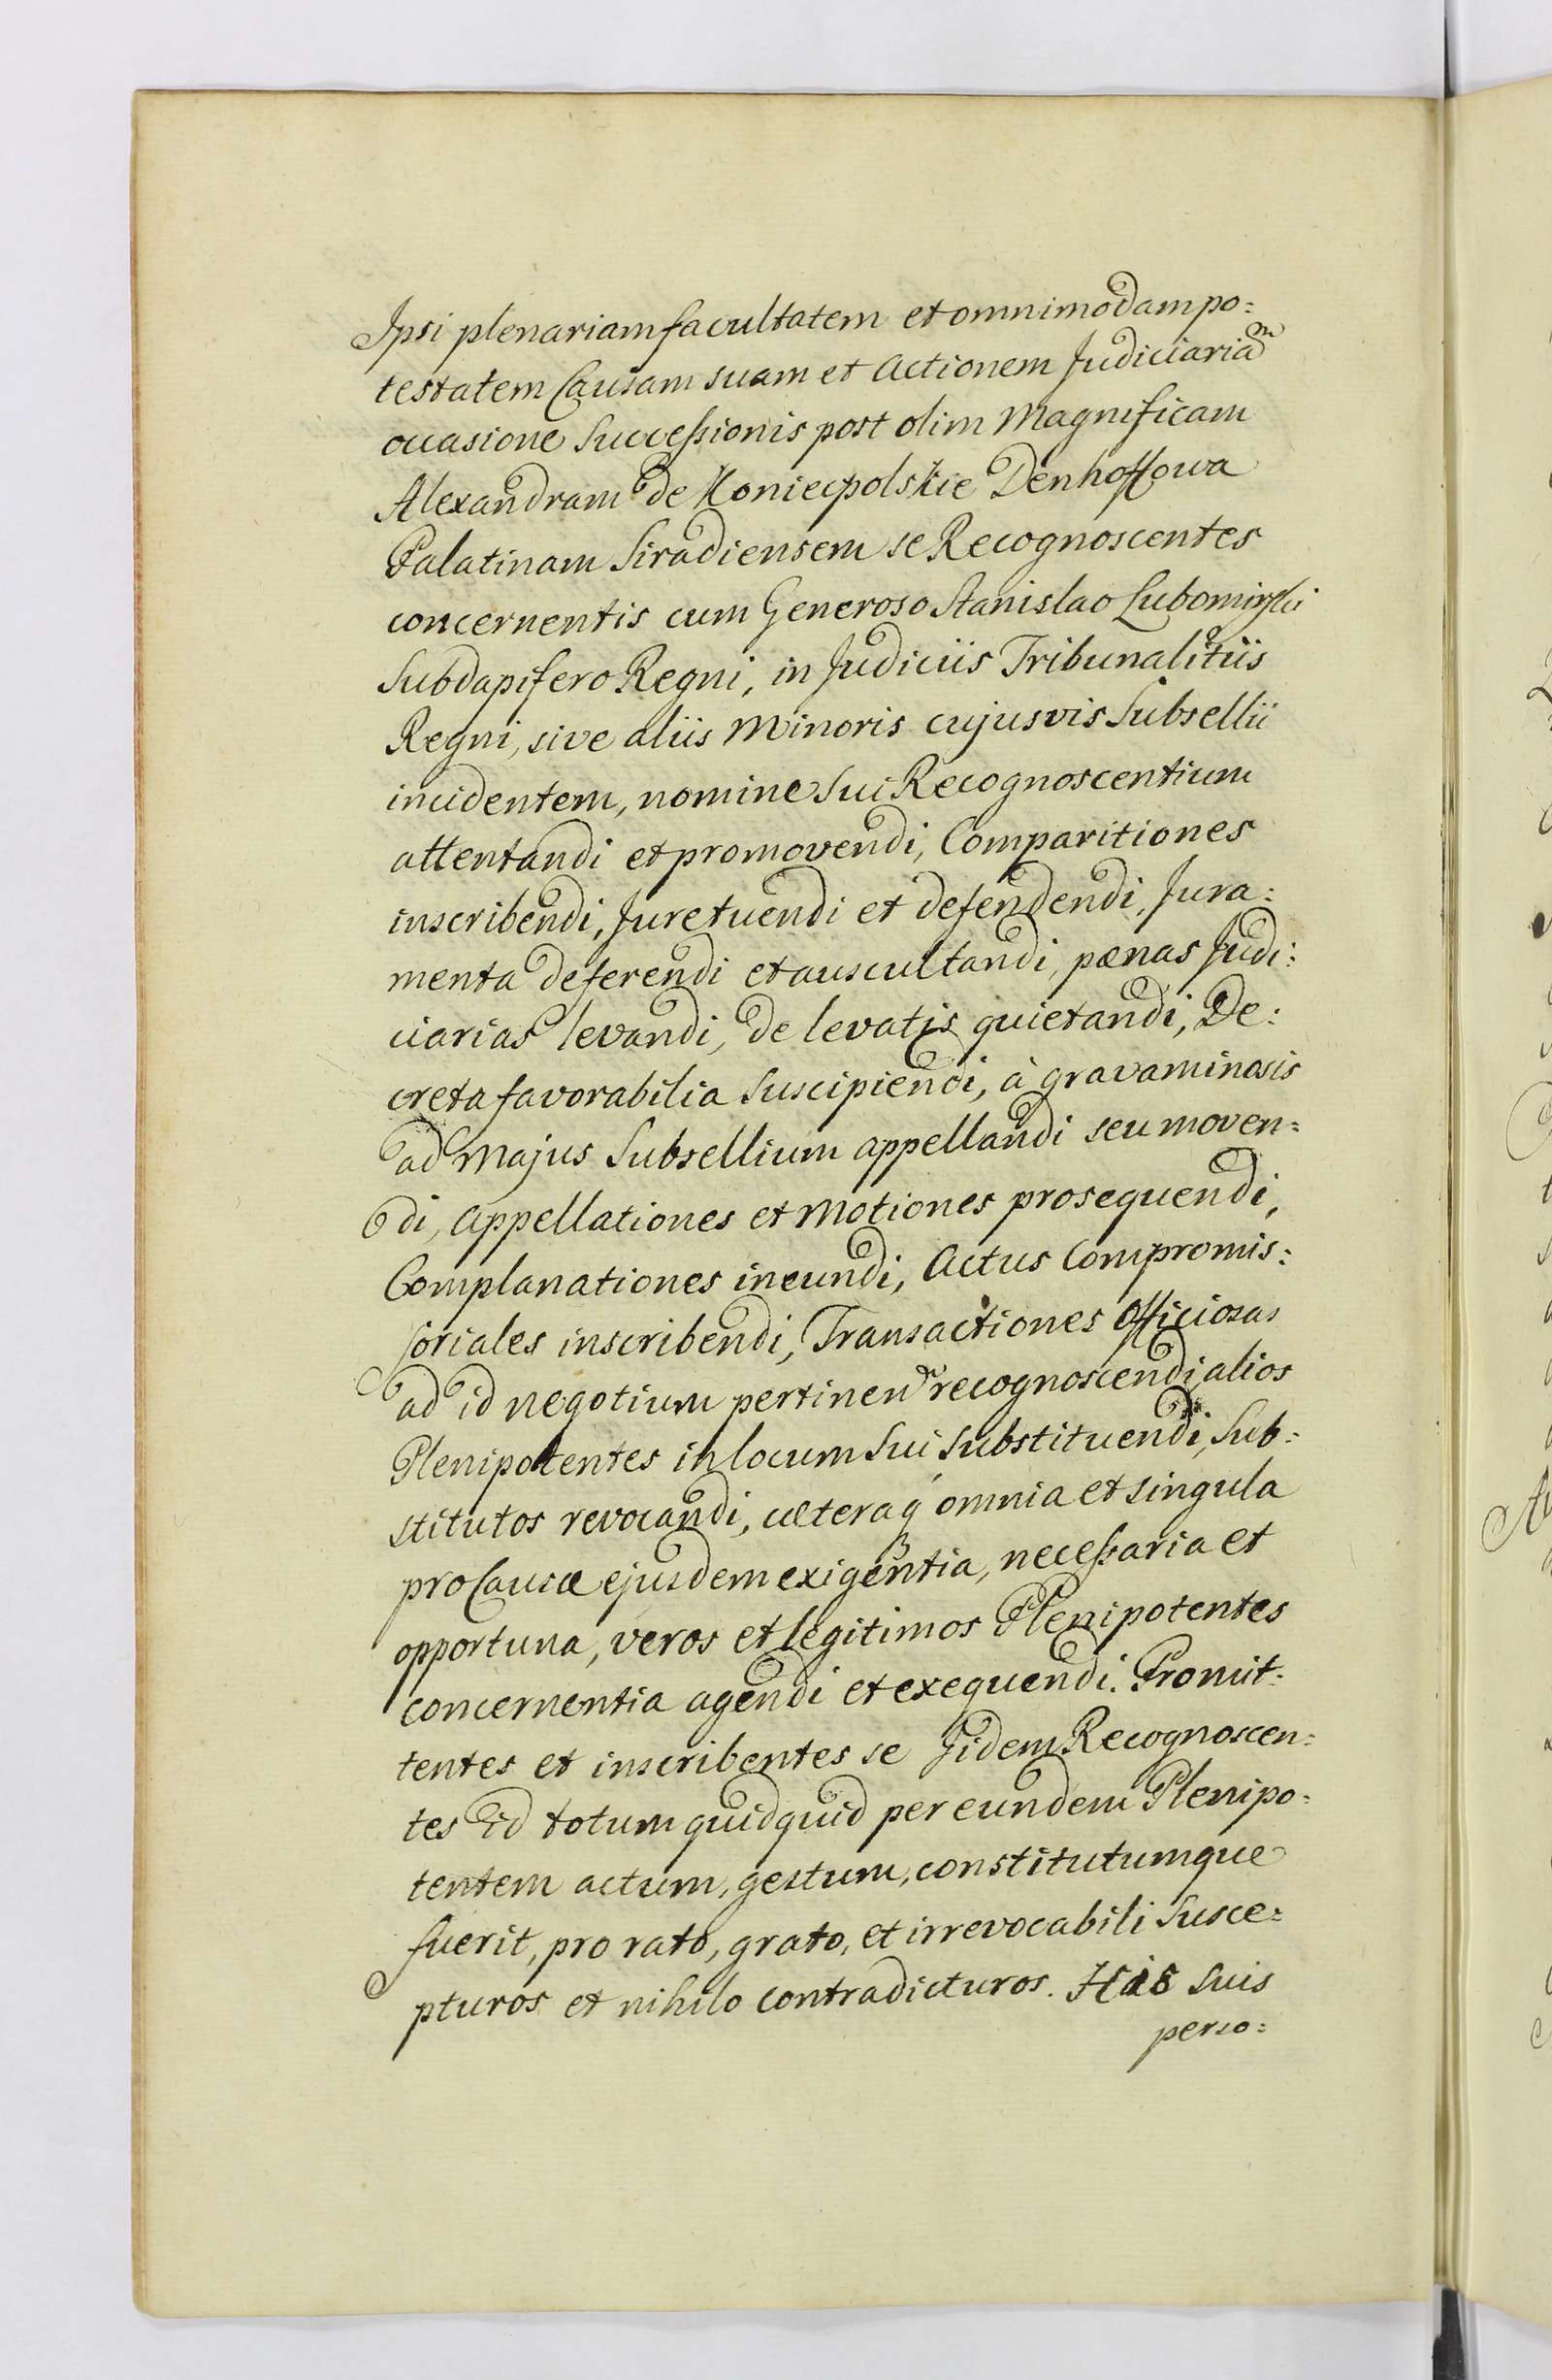 Ipsi plenariam facultatem et omnimodam po:
testatem Causam suam et Actionem Judiciariam
occasione Successionis post olim Magnificam
Alexandram de Koniecpolskie Denhoffowa
Palatinam Siradiensem se Recognoscentes
concernentis cum Generoso Stanislao Lubomirski
Subdapifero Regni, in Judiciis Tribunalitiis
Regni, sive aliis Minoris cujusvis Subsellii
incidentem, nomine Sui Recognoscentium
attentandi et promovendi, Comparitiones
inscribendi, Jure tuendi et defendendi, Jura:
menta deferendi et auscultandi, pænas Judi:
ciarias levandi, de levatis quietandi, De:
creta favorabilia Suscipiendi, à gravaminosis
ad Majus Subsellium appellandi seu moven:
di, Appellationes et Motiones prosequendi,
Complanationes ineundi, Actus Compromis:
soriales inscribendi, Transactiones Officiosas
ad id negotium pertinen recognoscendi, alios
Plenipotentes in locum Sui Substituendi, Sub:
stitutos revocandi, cæteraq omnia et singula
pro Causæ ejusdem exigentia, necessaria et
opportuna, veros et legitimos Plenipotentes
concernentia agendi et exequendi. Promit:
tentes et inscribentes se Jidem Recognoscen:
tes id totum quidquid per eundem Plenipo:
tentem actum, gestum, constitutumque
fuerit, pro rato, grato, et irrevocabili Susce:
pturos et nihilo contradicturos. His Suis
perso: